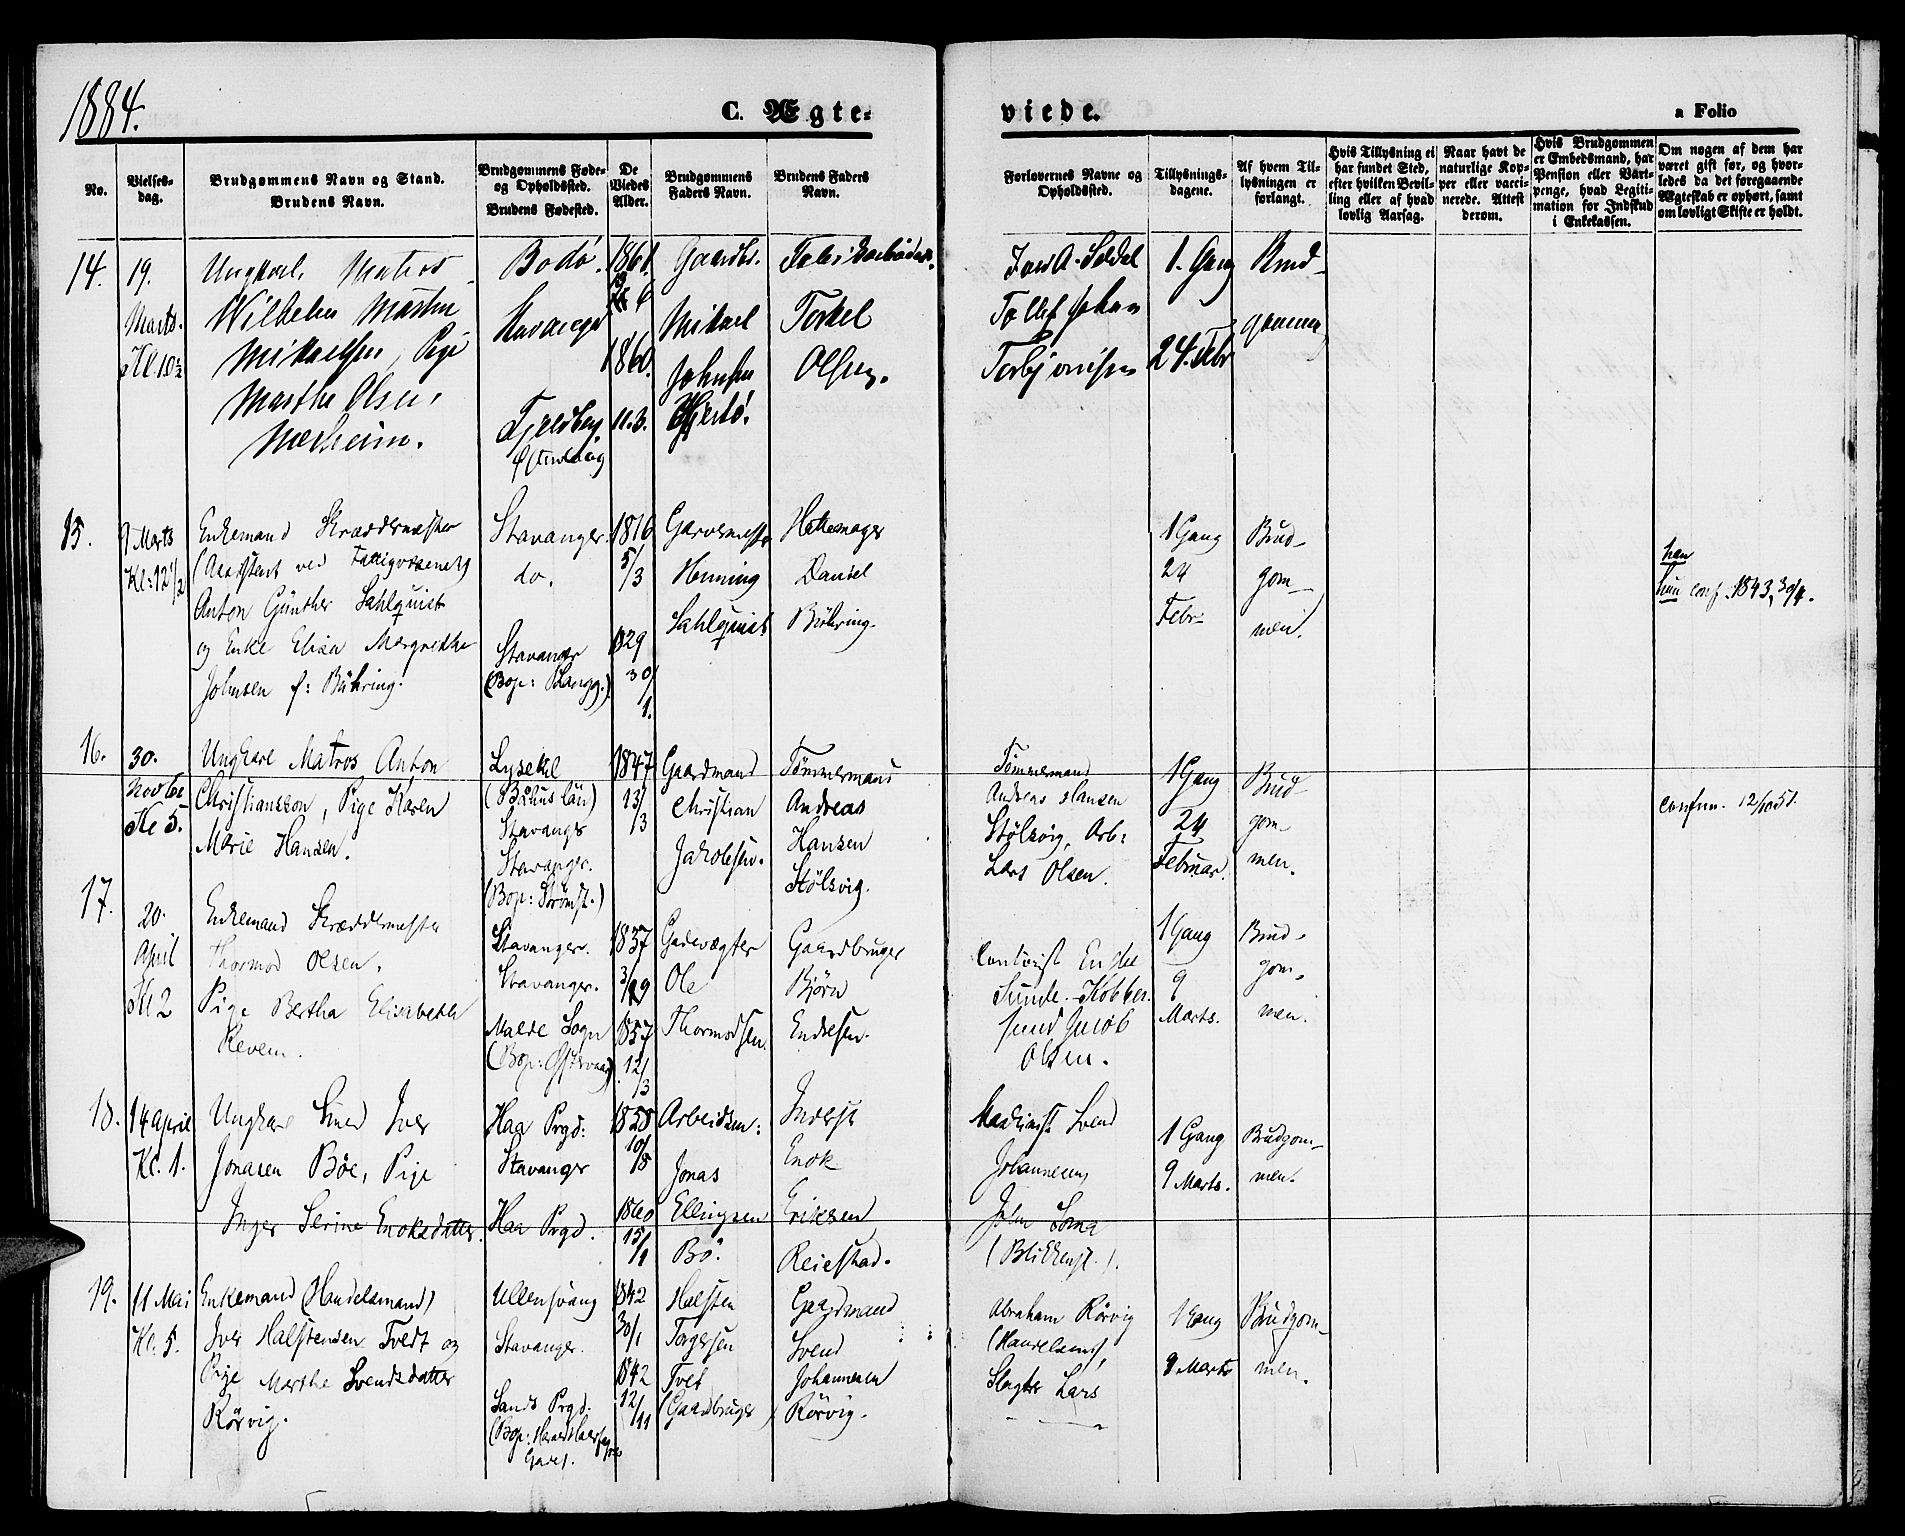 1884.
C. Ægte-
viede.
a Folio
No.
Vielses-
dag.
Brudgommens Navn og Stand.
Brudens Navn.
Brudgommens Føde-
og Opholdssted.
Brudens Fødested.
De
Viedes
Alder.
Brudgommens
Faders Navn.
Brudens Faders
Navn.
Forlovernes Navne og
Opholdssted.
Tillysnings-
dagene.
Af hvem Til-
lysningen er
forlangt.
Hvis Tillysning ei
har fundet Sted,
efter hvilken Bevil-
ling eller af hvad
lovlig Aarsag.
Naar havt de
naturlige Kop-
per eller vacci-
nerede. Attest
derom.
Hvis Brudgommen
er Embedsmand, har
Pension eller Vart-
penge, hvad Legiti-
mation for Indskud
i Enkekassen.
Om nogen af dem har
været gift før, og hvor-
ledes da det foregaaende
Ægteskab er ophørt, samt
om lovligt Skifte er holdt.
14.
19.
Marts.
Kl. 10½
Ungkarl Matros
Wilhelm Martin
Mikaelsen, Pige
Marthe Olsen
Bodø.
Stavanger
Fjeldberg
1861.
1860.
11.3.
Gaardbr.
Mikael
Johnsen
Torkel
Olsen.
Tollef Johan
Torbjørnsen
1. Gang
24. Febr
Brud-
gommen
15.
9 Marts
Kl: 12 1/2
Enkemand Skræddermester
(Assistent ved Fattigvæsenet)
Anton Günther Sahlquist
og Enke Elisa Margrethe
Johnsen f: Bühring.
Stavanger.
do.
Stavanger
1816
5/3
1829
30/
1.
Garvermester
Henning
Sahlquist
Hattemager
Daniel
Bühring.
1 Gang
24
Febr-
Brud-
gom-
men.
han
hun conf. 1843, 30/4.
16.
30.
Novbr
Kl 5.
Ungkarl Matros Anton
Christiansson, Pige Karen
Marie Hansen.
Lysekil
(Båhus län)
Stavanger
Stavanger.
(Bop: Strømst.)
1847
13/3
Gaardmand
Christian
Jakobsen.
Tømmermand
Andreas
Hansen
Stølsvig.
Tømmermand
Andreas Hansen
Stølsvig, Arb:
Lars Olsen.
1 Gang
24
Februar.
Brud
gom-
men.
confirm. 12/10 51.
17.
20.
April
Kl 2
Enkemand Skræddermester
Thormod Olsen.
Pige Bertha Elisabeth
Revem.
Stavanger.
Stavanger.
1837
3/
1857
12/3
Gadevægter
Ole
Thormodsen.
Gaardbruger
Bjørn
Endresen.
Contorist Endre
Sunde. Kobber-
smed Jacob
Olsen.
1 Gang
9
Marts.
Brud-
gom-
men.
18.
14 April
Kl. 1.
Ungkarl Smed Iver
Jonasen Bøe, Pige
Inger Serine Enoksdatter.
Haa Prgd:
Stavanger
Haa Prgd.
1858
10/8
1860
15/1
Arbeidsm:
Jonas
Ellingsen
Bø.
Inderst
Enok
Eriksen
Reiestad.
Maskinist Svend
Johannesen
John Soma
(Blikkensl.).
1 Gang
9 Marts.
Brudgom-
men.
19.
11 Mai
Kl. 5.
Enkemand (Handelsmand)
Iver Halstensen Tvedt og
Pige Marthe Svendsdatter
Rørvig.
Ullensvang
Stavanger.
Sands Prgd.
1842
30/1
1842
12/11
Halsten
Torgersen
Tvet
(Gaardbruger)
Gaardmand
Svend
Johannesen
Rørvig.
Abraham Rørvig
(Handelsmd),
Slagter Lars
1 Gang
9 Marts
Brudgom-
men.